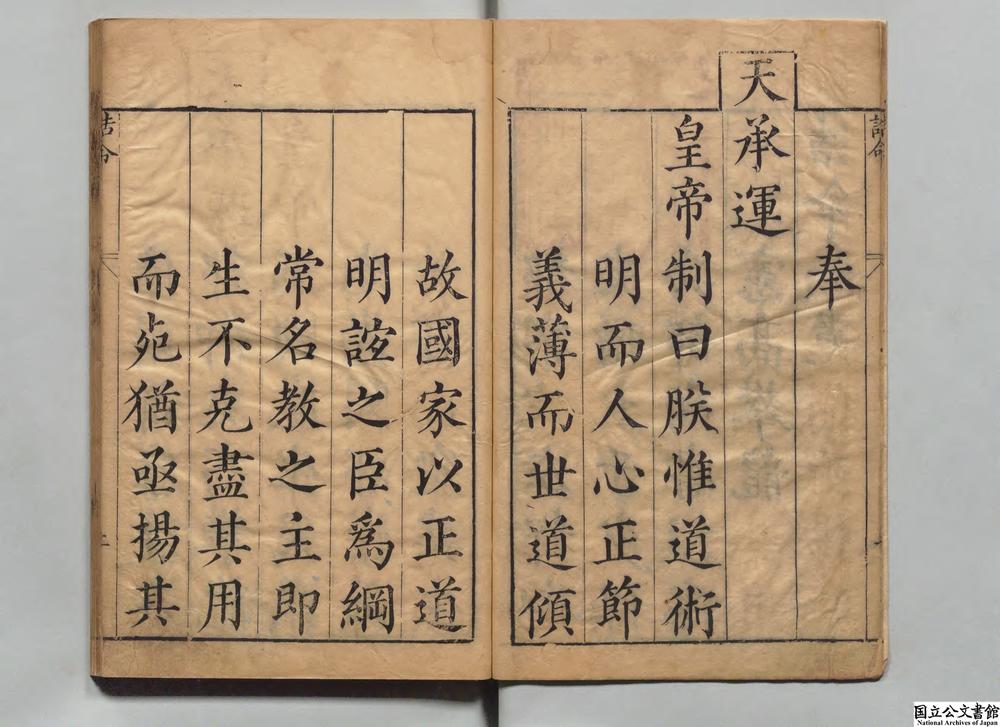 奉
天承運
皇帝制曰朕惟道術
明而人心正節
義薄而世道傾
故國家以正道
明誼之臣為綱
常名教之主即
生不克盡其用
而死猶亟揚其
誥命
誥命
國立公文書館
National Archives of Japan